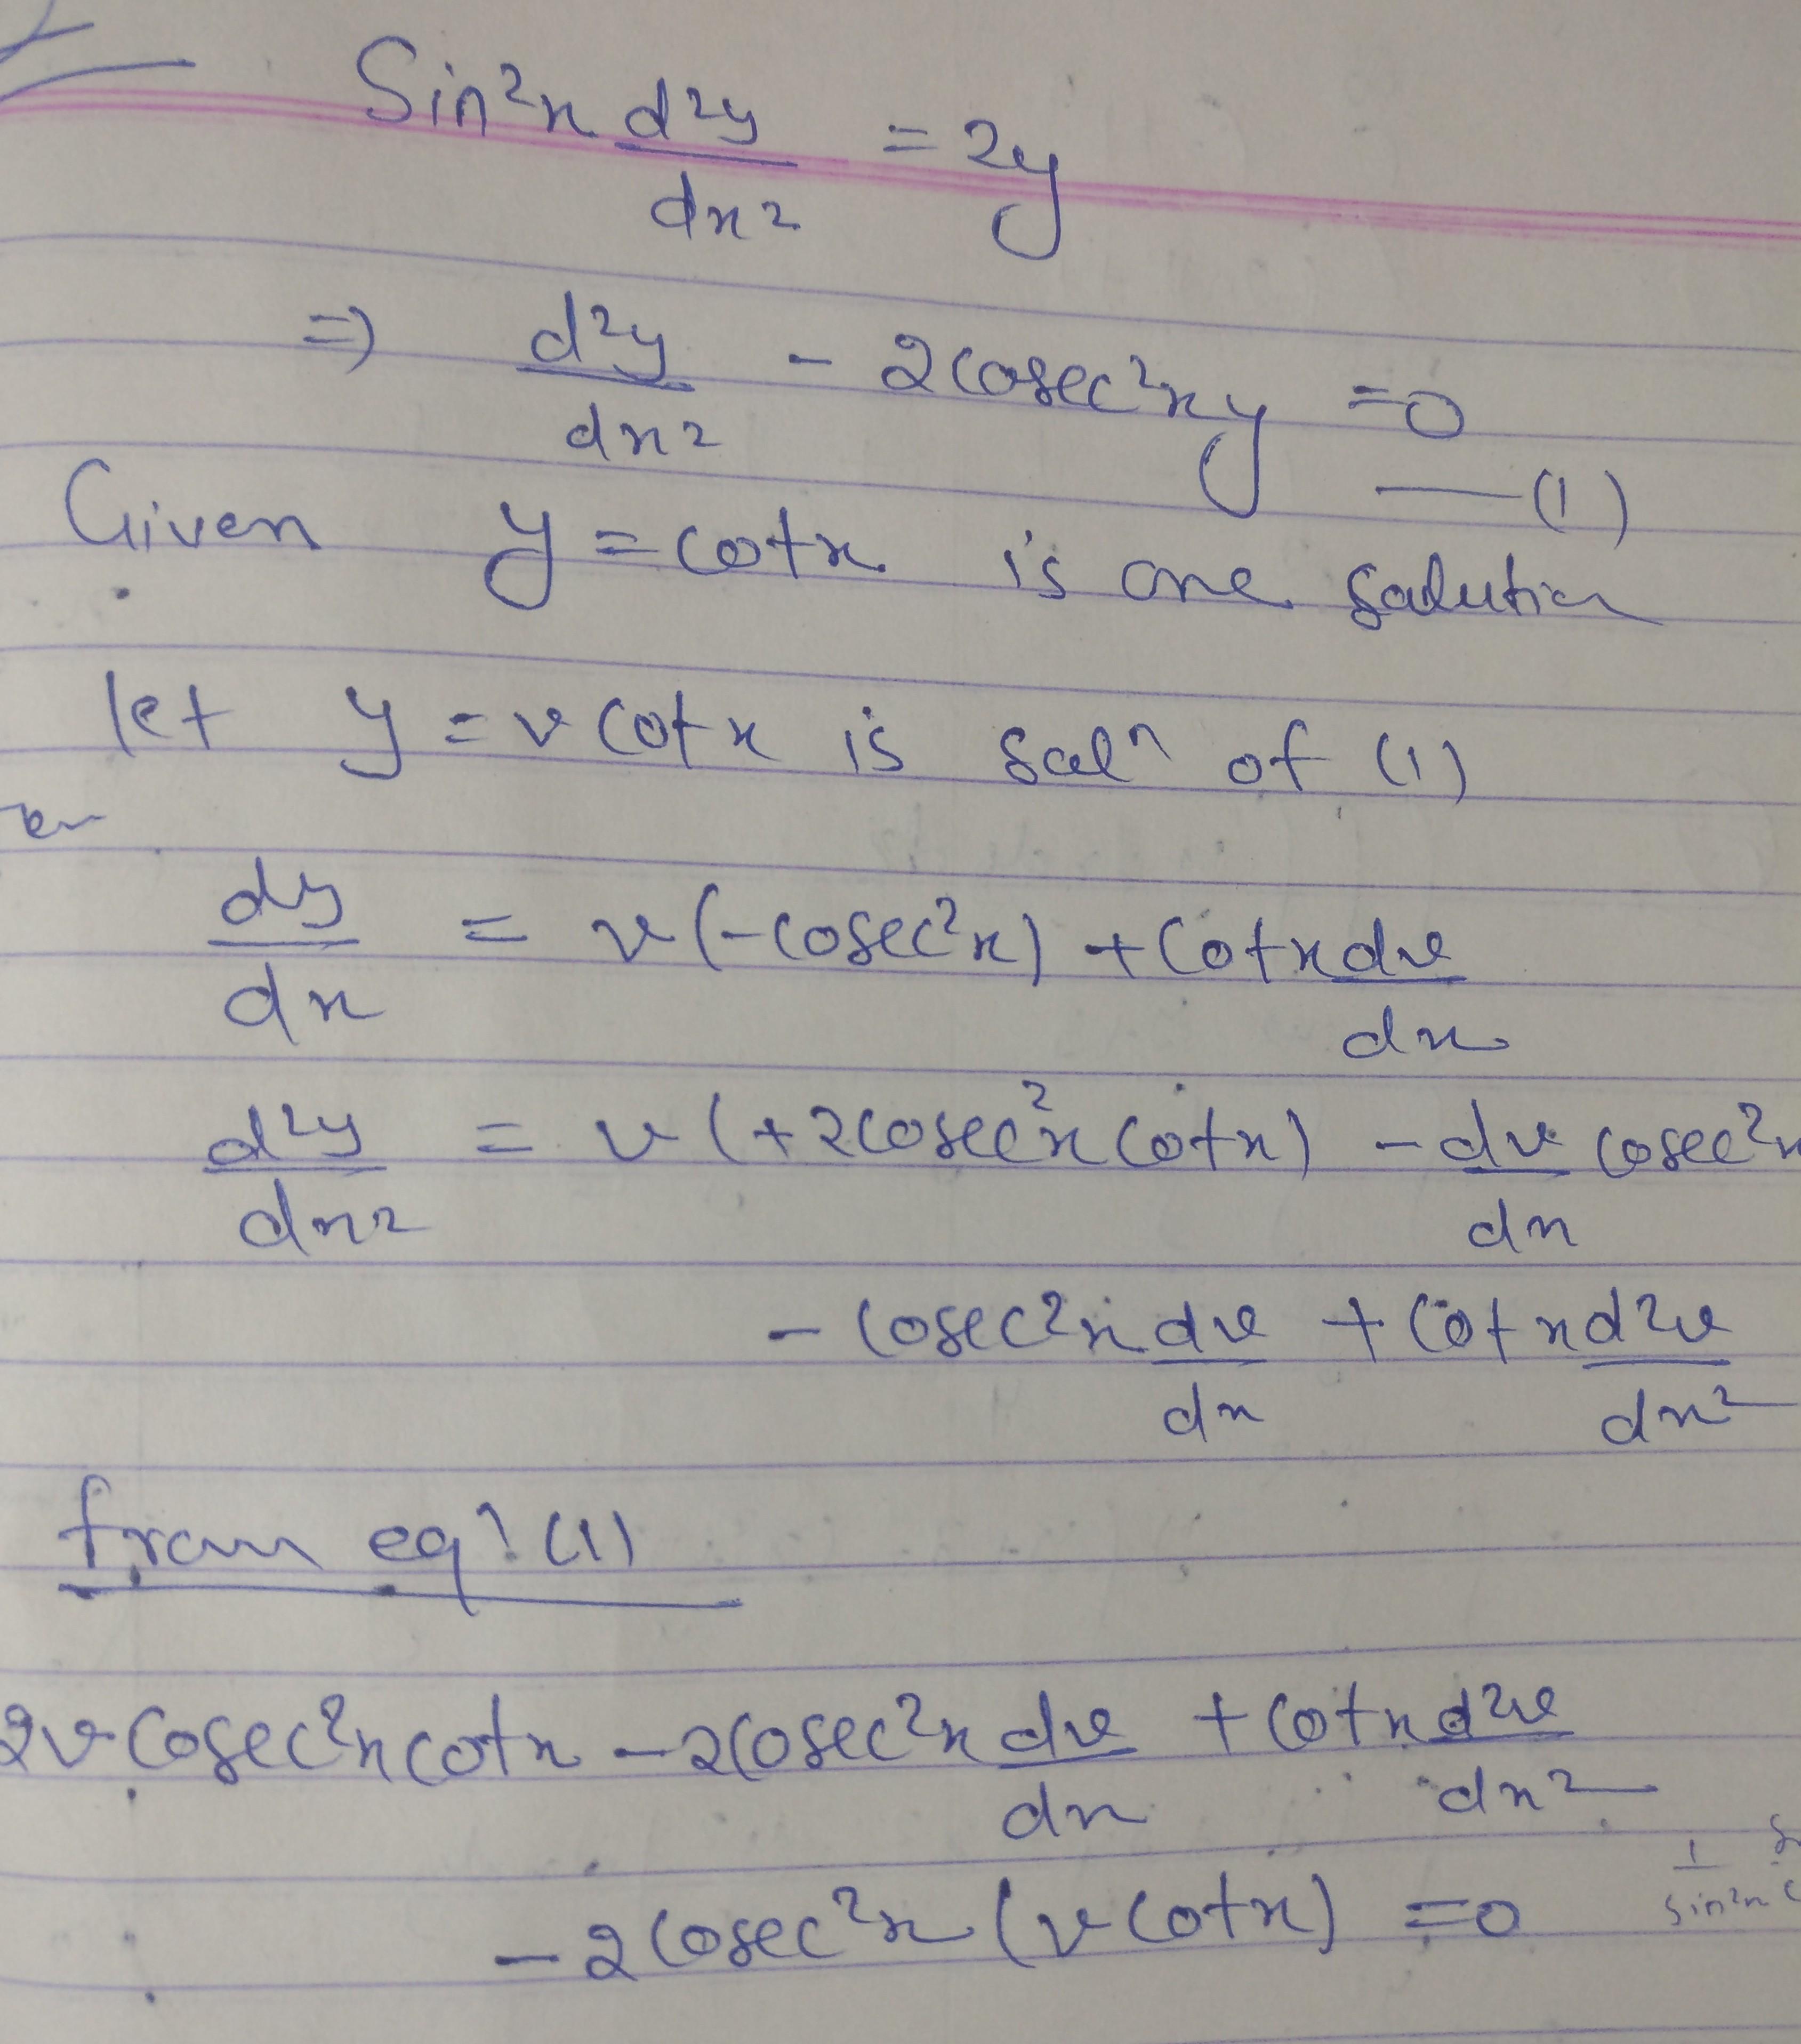 Sin²x d²y/dx² = 2y
⇒ d²y/dx² - 2cosec²x y = 0
—(1)
Given y = cotx is one solution
let y = v cotx is solⁿ of (1)
dy/dx = v(-cosec²x) + cotx dv/dx
d²y/dx² = v(+2cosec²x cotx) - dv/dx cosec²x
- cosec²x dv/dx + cotx d²v/dx²
from eqⁿ (1)
2v cosec²x cotx - 2cosec²x dv/dx + cotx d²v/dx²
- 2cosec²x (v cotx) = 0
1/sin²x